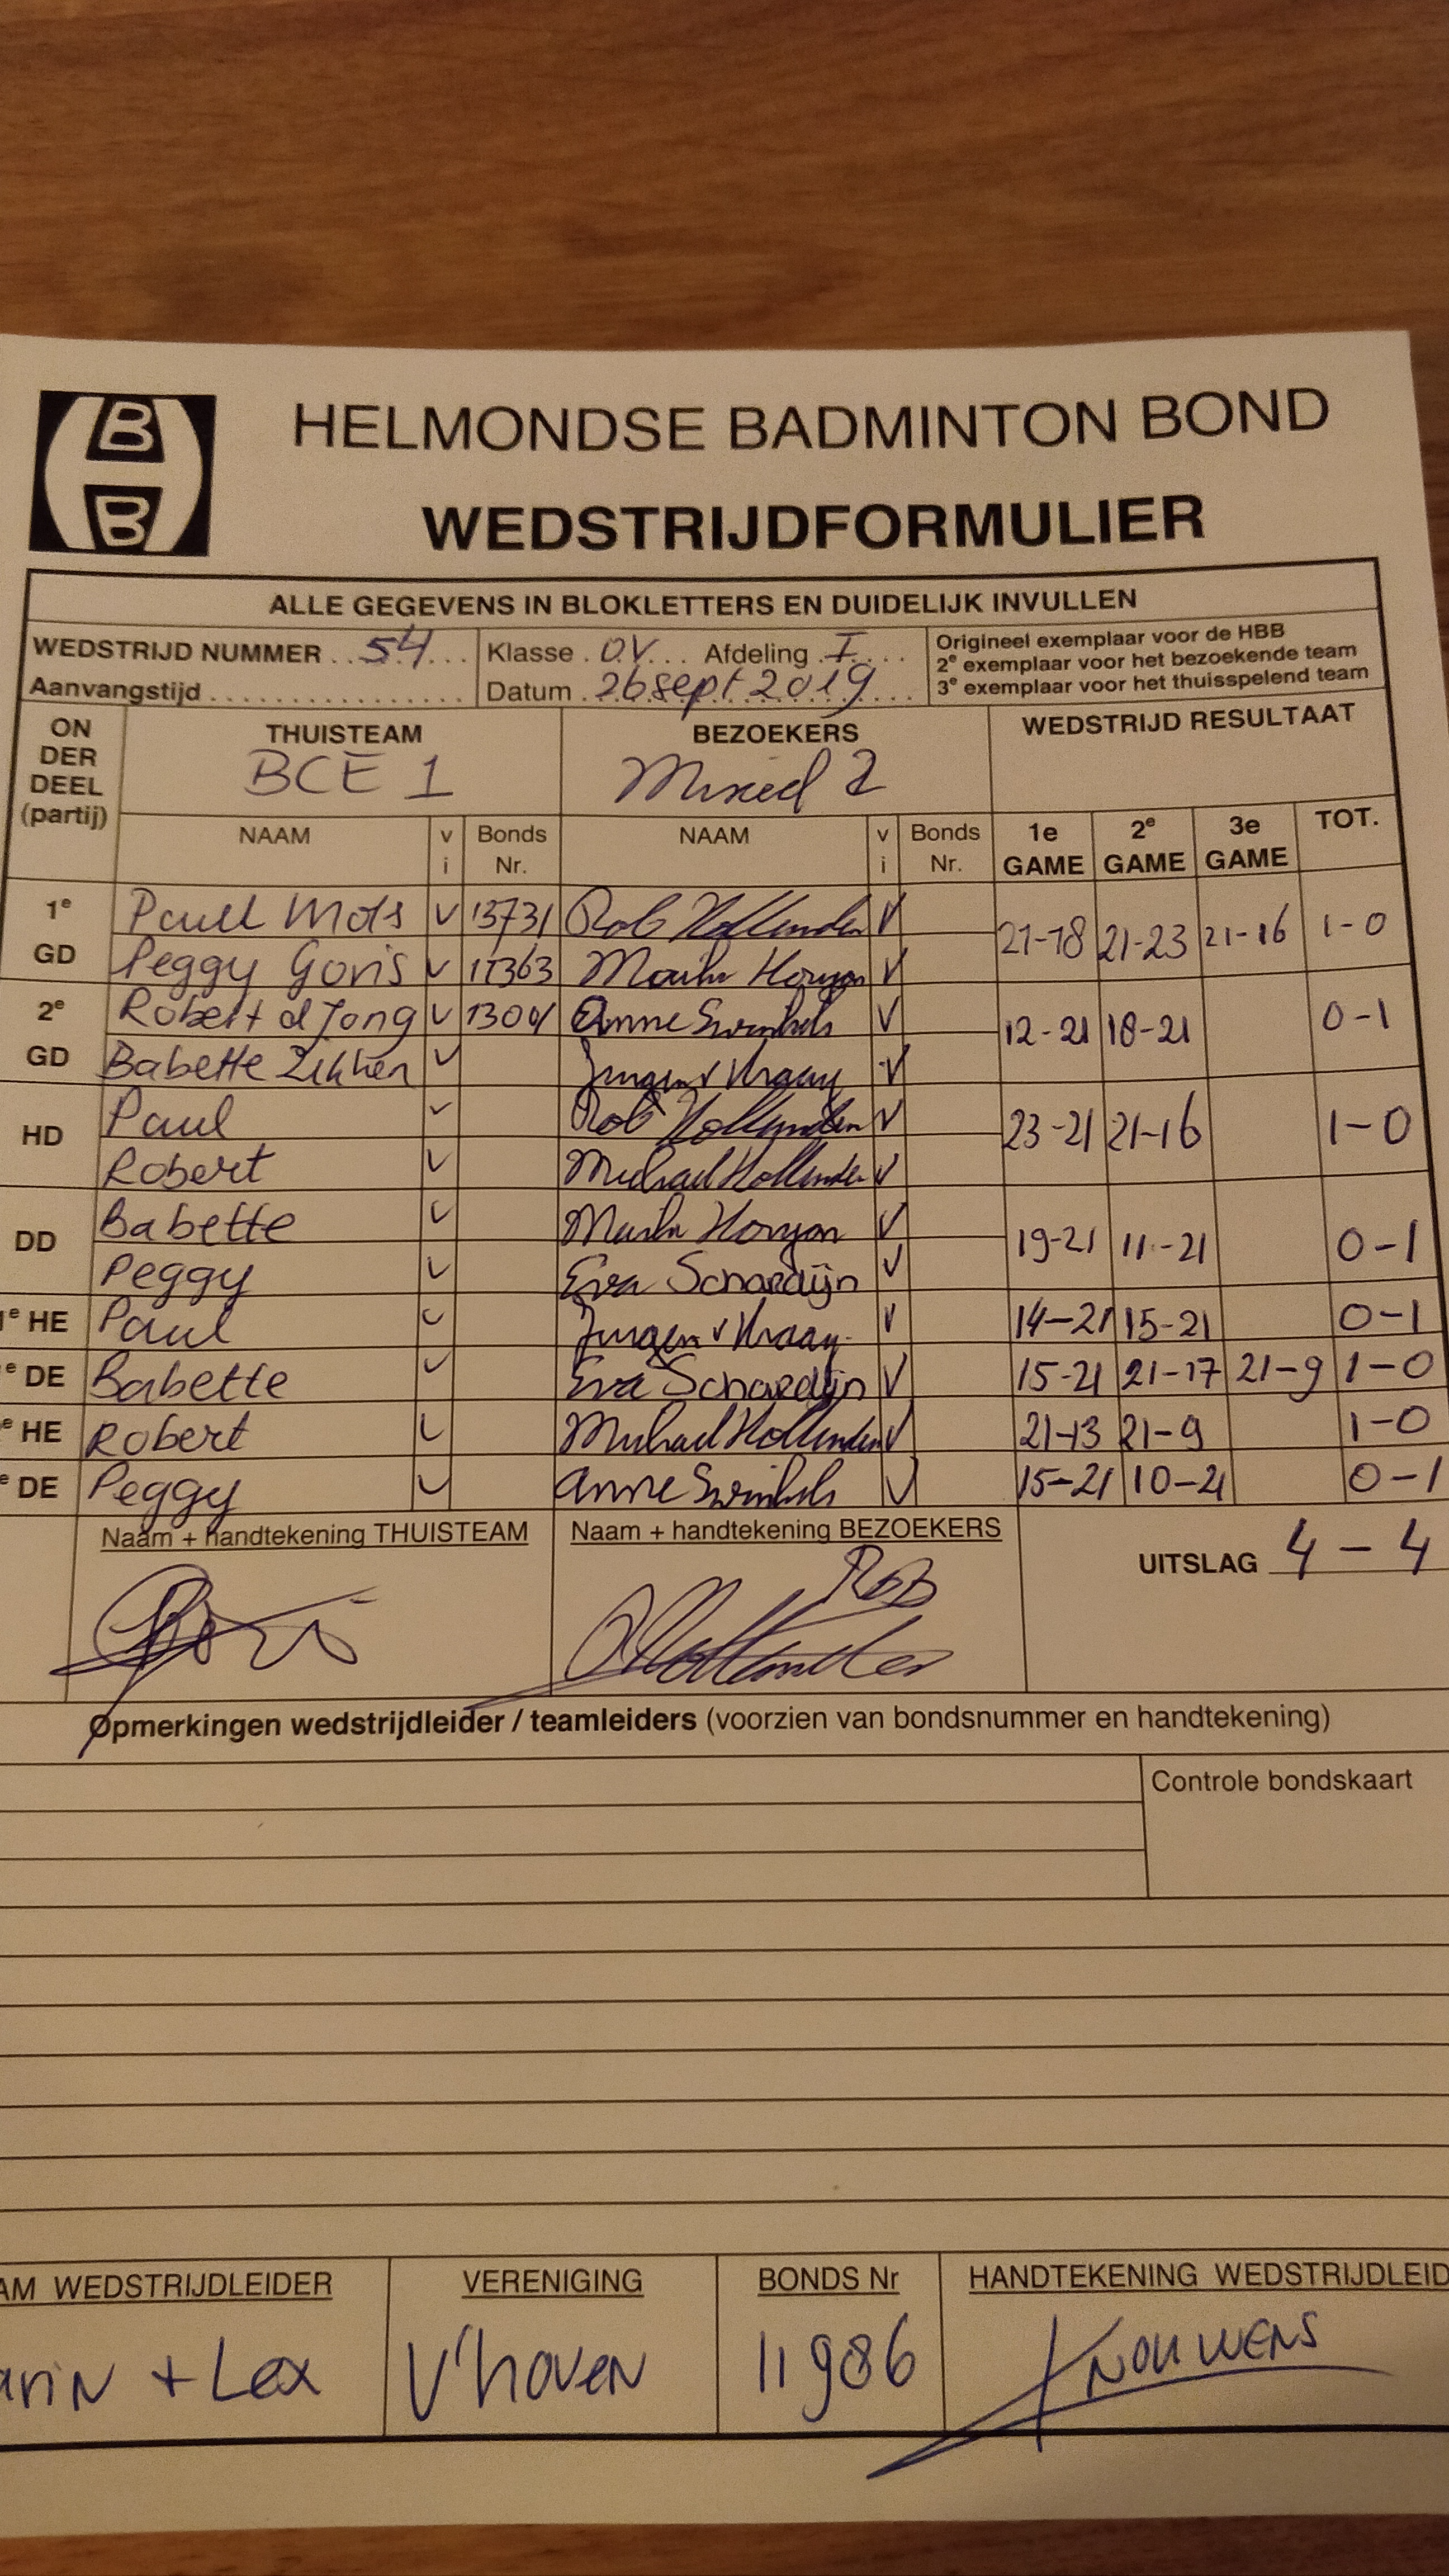 B
B
HELMONDSE BADMINTON BOND
WEDSTRIJDFORMULIER
ALLE GEGEVENS IN BLOKLETTERS EN DUIDELIJK INVULLEN
WEDSTRIJD NUMMER 54 Klasse O.V. Afdeling I Origineel exemplaar voor de HBB
2e exemplaar voor het bezoekende team
Aanvangstijd Datum 26 sept 2019 3e exemplaar voor het thuisspelend team
ON DER DEEL (partij) THUISTEAM BEZOEKERS WEDSTRIJD RESULTAAT
BCE 1 Mixed 2
NAAM v i Bonds Nr. NAAM v i Bonds Nr. 1e GAME 2e GAME 3e GAME TOT.
1e GD Paul Mots v 13731 Rob Hollander v 21-18 21-23 21-16 1-0
Peggy Goris v 11363 v
2e GD Robert d Jong v Anne Swinkels v 12-21 18-21 0-1
Babette v Jurgen v Kraay v
HD Paul v Rob Hollander v 23-21 21-16 1-0
Robert v Michael Hollander v
DD Babette v v 19-21 11-21 0-1
Peggy v Eva Schardijn v
e HE Paul v Jurgen v Kraay v 14-21 15-21 0-1
e DE Babette v Eva Schardijn v 15-21 21-17 21-9 1-0
e HE Robert v Michael Hollander v 21-13 21-9 1-0
e DE Peggy v Anne Swinkels v 15-21 10-21 0-1
Naam + handtekening THUISTEAM Naam + handtekening BEZOEKERS UITSLAG 4-4
Rob
Hollander
Opmerkingen wedstrijdleider / teamleiders (voorzien van bondsnummer en handtekening)
Controle bondskaart
AM WEDSTRIJDLEIDER VERENIGING BONDS Nr HANDTEKENING WEDSTRIJDLEID
arin + Lex V'hoven 11986 Knouwens